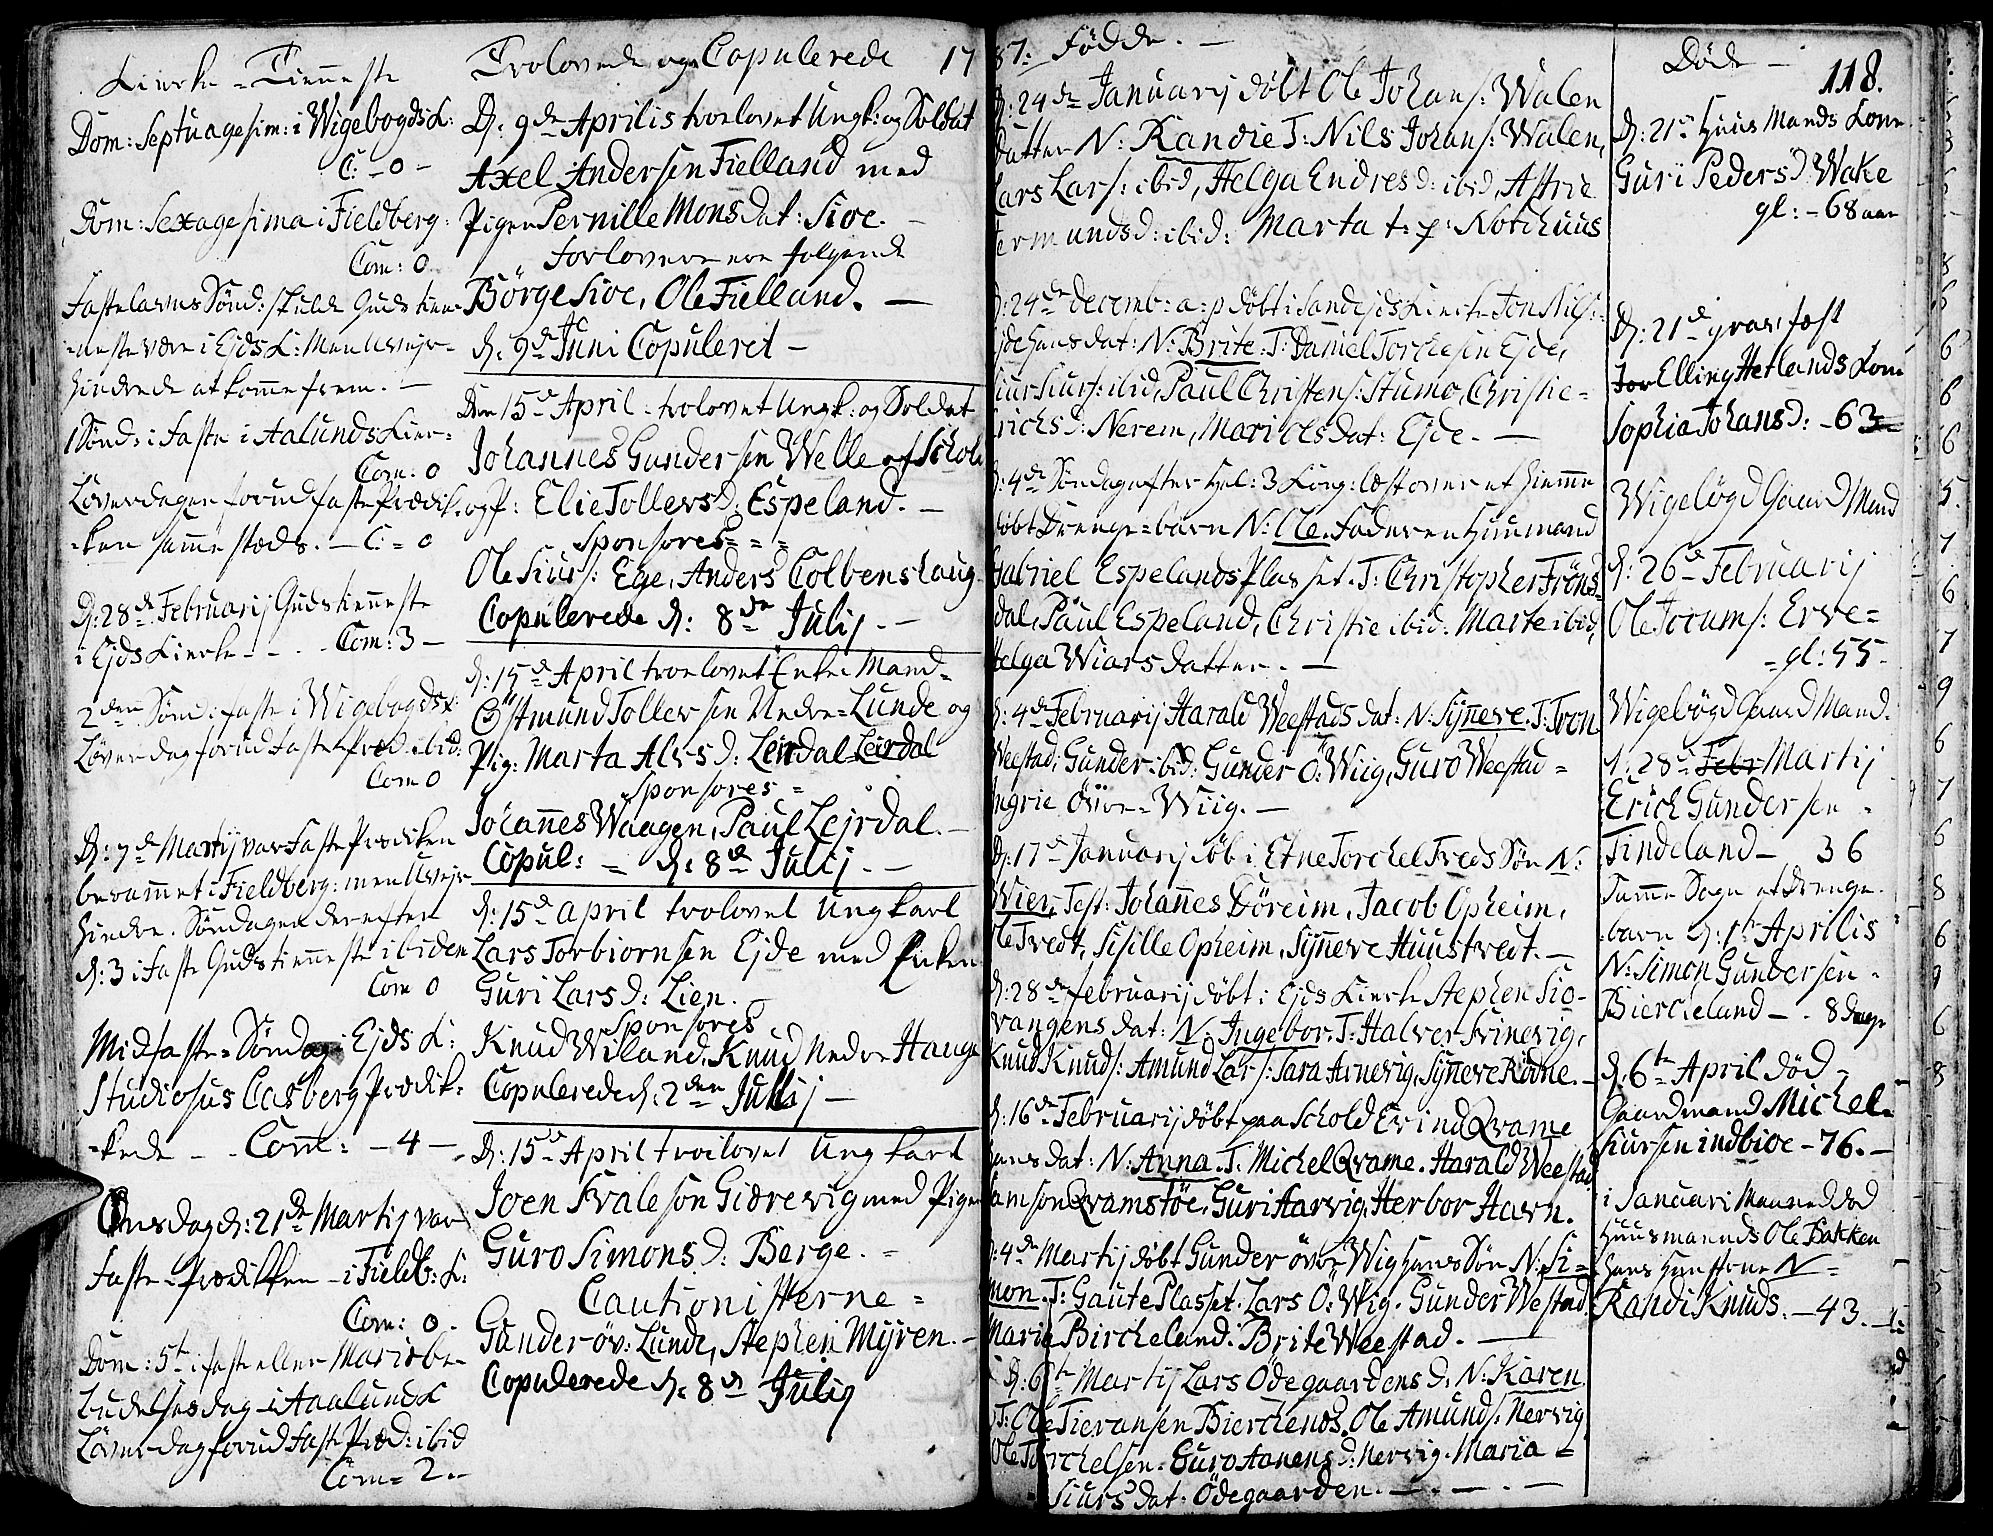 Kierke-Tienneste
Dom: Septuagesim: i Wigebøgds K:
C: - 0 -
Dom: Sexagesima i Fieldberg:
Com: 0
Fastelavns Sønd: skulde Guds tien-
-neste være i Ejds K: Men Uvejr
hindrede at komme frem. -
1 Sønd: i Faste i Aalunds Kier-
Com: 0
Løverdagen forud Faste Prædik-
-ken samme stæds. - C: = 0
D: 28de Februarij Gudstienneste
i Ejds Kierke - - - Com: 3 -
2den Sønd: i faste i Wigebøgds K:
Løverdag forud Faste Præd: ibid:
Com 0
D: 7de Martij var Faste Prædiken
berammet i Fieldberg: men Uvejr
hindre. Søndagen derefter
d: 3 i Faste Gudstienneste ibidem
Com 0
Midfaste-Søndag i Ejds K:
Studiosus Casberg Prædik-
-kede - - Com: - 4 -
Onsdag d: 21de Martij var
Faste-Prædikken - i Fieldb: K:
Com: 0 -
Dom: 5te i faste eller Mariæ be-
budelses dag - i Aalund K
Løverdag forud Faste Præd: ibid
Com = 2. -
Trolovede og Copulerede 17
D: 9de Aprilis trolovet Ungk: og Soldat
Axel Andersen Fielland med
Pigen Pernille Mons dat: Sioe. -
Forlovere ere følgende
Börge Sioe, Ole Fielland. -
d: 9de Juni Copuleret -
Den 15de April - trolovet Ungk: og Soldat
Johannes Gundersen Welle af Schold
og P: Elie Tollers d: Espeland. -
Sponsores = =
Ole Siurs: Ege, Anders Colbenslaug
Copulerede d: 8de Julij - -
d: 15de April trolovet Enke Mand
Östmund Tollersen Nedre-Lunde og
Pig: Marta Alvs d: Leirdal Leirdal
Sponsores =
Johannes Waagen, Paul Lejrdal. -
Copul: = d: 8de Julij - -
d: 15de april trolovet Ungkarl
Lars Torbiornsen Ejde med Enken
Guri Lars d: Lien.
Sponsores
Knud Wiland, Knud Nedre Hauge
Copulerede d: 2den Julij -
d: 15de April trolovet Ungkarl
Joen Svalesøn Giærevig med Pigen
Guro Simons d: Berge. -
Cautionisterne =
Gunder öv: Lunde, Stephen Myren. -
Copulerede d: 8de Julij
87: Fødde. -
D: 24de Januarij døbt Ole Johans: Walen
datter N: Randie T: Nils Johans: Walen,
Lars Lars: ibid, Helga Endres d: ibid, Astrie
Germunds d: ibid: Marta t: p: Nordhuus
D: 24de Decemb: a: p døbt i Sandejds Kierke Jon Nils:
Ejde hans dat: N: Brite. T: Daniel Torchesen Ejde,
Siur Siurs: ibid, Paul Christens: Stumo, Christie
Erichs d: Nerem, Mari Ols dat: Ejde. -
D: 4de Søndag efter Hel: 3 Kong: læst over et hiemme
døbt Drenge-barn N: Ole. Faderen Huusmand
Gabriel Espelands Plasset. T: Christopher Fröns
dal, Paul Espeland, Christie ibid: Marte ibid,
Helga Wiars datter. -
d: 4de Februarij Harald Weestads dat: N: Synneve. T: Tron
Weestad, Gunder ibid: Gunder Ö: Wiig, Guro Weestad =
Ingrie Övre-Wiig. -
D: 17de Januarij døb: i Etne Torchel Treds Søn N:
Wier, Test: Johannes Döreim, Jacob Opheim,
Ole Tredt, Sisille Opheim, Synneve Huustredt. -
d: 28de februarij døbt i Ejds Kierke Stephen Sio-
vangens dat: N: Ingebor. T: Halver Svinevig,
Knud Knuds: Amund Lars: Sara Arnevig, Synneve Rödne. -
d: 16de Februarij døbt paa Schold Erind Qvame
hans dat: N: Anna. T: Michel Qvame. Harald Weestad
Samson Qvamstöe, Guri Harvig, Herbor Havn.
D: 4de Martij døbt Gunder övre Wig hans Søn N: Si-
mon. T: Gaute Plasset. Lars Ö: Wig. Gunder Westad
Marie Bircheland. Brite Weestad. -
d: 6te Martij Lars Ödegaardens d: N: Karen
T: Ole Tieransen Bierchends. Ole Amunds: Nervig
Ole Torchelsen. Guro Aanens d: Nervig. Maria =
Siurs dat: Ödegaarden. - - - -
Døde - 118.
D: 21de Huus Mands Kone
Guri Peders d: Wake
gl: - 68 aar
D: 21de grav: fæst
for Elling Hetlands Kone
Sophia Johans d: - 63
Wigebögd Gaard Mand
d: 26de Februarij
Ole Jocums: Erve=
= gl: 55.
Wigebögd Gaard Mand.
d. 28de Febr Martij
Erich Gundersen -
Tindeland - 36
Samme Sogn et drenge
barn d: 1te Aprilis
N: Simon Gundersen -
Biercheland - - 8 dage
d. 6te April død
Gaardmand Michel
Siursen indbioe - 76. -
i Januari Maaned død
Huusmannds Ole Bakken
hans Hustrue N =
Randi Knuds. - 43. -